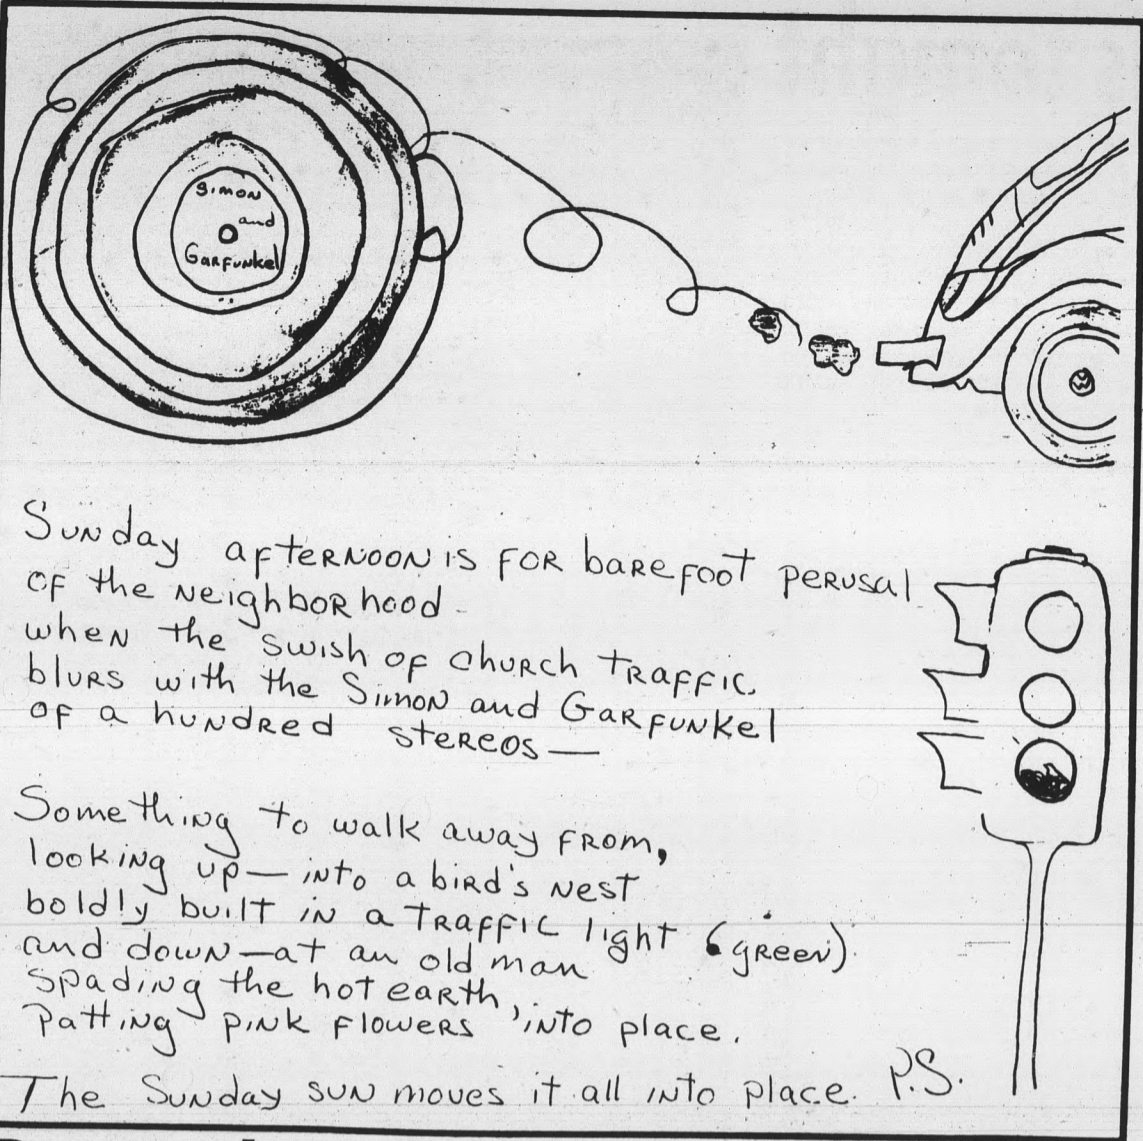 Simon
and
Garfunkel
Sunday afternoon is for barefoot perusal
of the neighborhood
when the swish of church traffic
blurs with the Simon and Garfunkel
of a hundred stereos—
Something to walk away from,
looking up—into a bird's nest
boldly built in a traffic light (green)
and down—at an old man
spading the hot earth,
Patting pink flowers into place.
The Sunday sun moves it all into place. P.S.